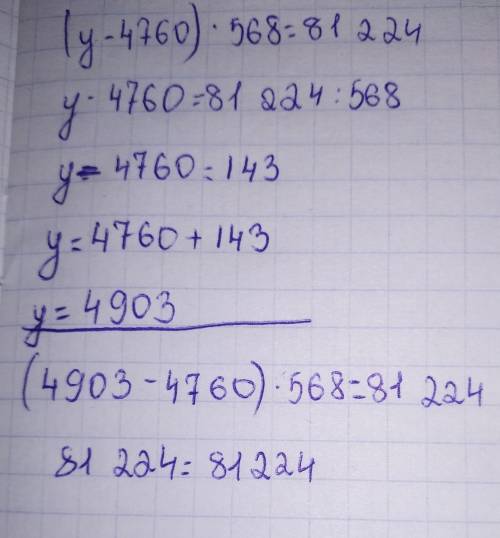 (y - 4760) · 568 = 81 224
y - 4760 = 81 224 : 568
y - 4760 = 143
y = 4760 + 143
y = 4903
(4903 - 4760) · 568 = 81 224
81 224 = 81 224